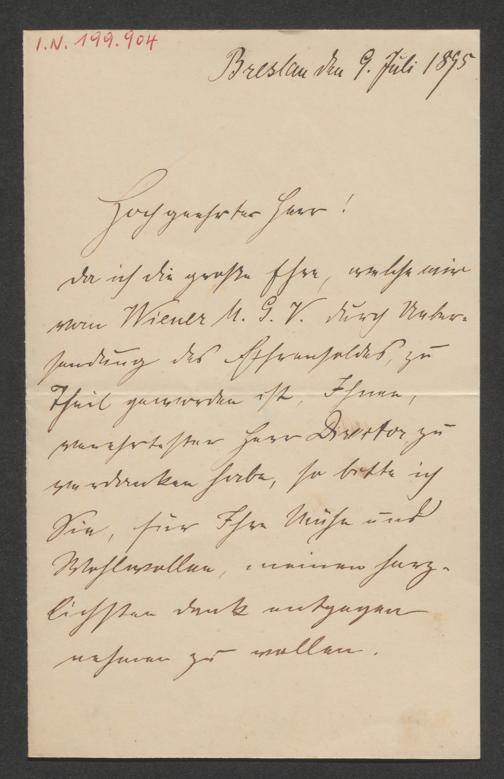 I.N. 199.904
Breslau den 9. Juli 1895
Hochgeehrter Herr!
Da ich die große Ehre, welche mir
vom Wiener M. G. V. durch Ueber-
sendung des Ehrensoldes, zu
Theil geworden ist, Ihnen,
verehrtester Herr Director zu
verdanken habe, so bitte ich
Sie, für Ihre Mühe und
Wohlwollen, meinen herz-
lichsten Dank entgegen
nehmen zu wollen.